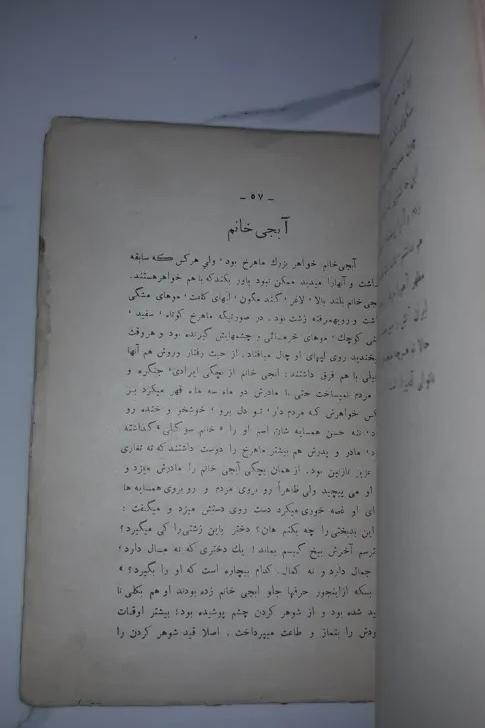 - ٥٧ -
آبجی خانم
آبجی خانم خواهر بزرك ماهرخ بود ، ولی هر کس که سابقه
داشت و آنهارا میدید ممکن نبود باور بکند که با هم خواهر هستند.
آبجی خانم بلند بالا ، لاغر ، گندم گون ، لبهای کلفت ، موهای مشکی
داشت و رویهمرفته زشت بود . در صورتیکه ماهرخ کوتاه ، سفید ،
بینی کوچك ، موهای خرمائی و چشمهایش گیرنده بود و هروقت
میخندید روی لپهای او چال میافتاد . از حیث رفتار وروش هم آنها
خیلی با هم فرق داشتند : آبجی خانم از بچگی ایرادی ، جنگره و
مردم نمیساخت حتی با مادرش دو ماه سه ماه قهر میکرد بر
کس خواهرش که مردم دار ، تو دل برو ، خوشخو و خنده رو
د ، ننه حسن همسایه شان اسم او را « خانم سوگلی » گذاشته
د ، مادر و پدرش هم بیشتر ماهرخ را دوست داشتند که ته تغاری
عزیز نازنین بود . از همان بچگی آبجی خانم را مادرش میزد و
او می پیچید ولی ظاهراً رو بروی مردم و رو بروی همسایه ها
ای او غصه خوری میکرد دست روی دستش میزد و میگفت :
این بدبختی را چه بکنم هان ؟ دختر باین زشتی را کی میگیرد ؟
ترسم آخرش بیخ گیسم بماند ! یك دختری که نه مال دارد ،
جمال دارد و نه کمال . کدام بیچاره است که او را بگیرد ؟ »
بسکه ازاینجور حرفها جلو آبجی خانم زده بودند او هم بکلی نا
ید شده بود و از شوهر کردن چشم پوشیده بود ؛ بیشتر اوقات
ودش را بنماز و طاعت میپرداخت . اصلا قید شوهر کردن را